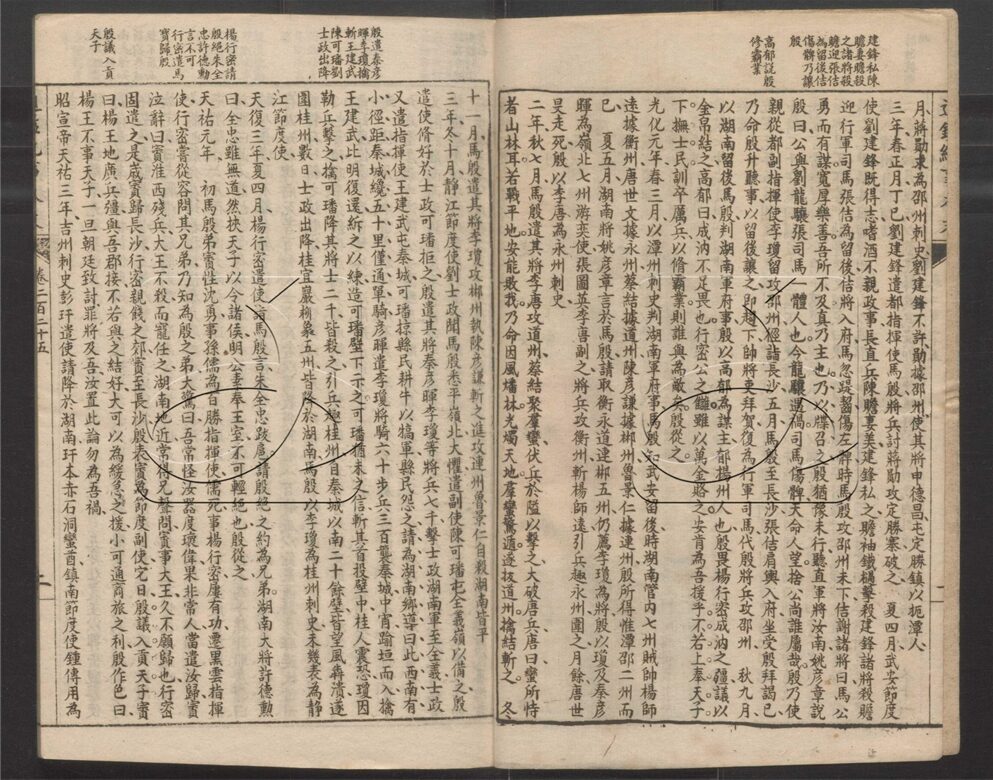 建鋒私陳
贍妻贍殺
之諸將殺
贍迎張佶
為留後佶
傷髀乃讓
殷
高郁説殷
修霸業
月蔣勛求為邵州刺史劉建鋒不許勛據邵州使其將申德昌屯定勝鎮以扼潭人
三年春正月丁巳劉建鋒遣都指揮使馬殷將兵討蔣勛攻定勝寨破之 夏四月武安節度
使劉建鋒既得志嗜酒不親政事長直兵陳贍妻美建鋒私之贍袖鐵檛擊殺建鋒諸將殺贍
迎行軍司馬張佶為留後佶將入府馬忽踶齧傷左髀時馬殷攻邵州未下佶謝諸將曰馬公
勇而有謀寬厚樂善吾所不及真乃主也乃以牒召之殷猶豫未行聽直軍將汝南姚彦章說
殷曰公與劉龍驤張司馬一體人也今龍驤遇禍司馬傷髀天命人望捨公尚誰屬哉殷乃使
親從都副指揮使李瓊留攻邵州徑詣長沙五月馬殷至長沙張佶肩輿入府坐受殷拜謁已
乃命殷升聽事以留後讓之即趨下帥將吏拜賀復為行軍司馬代殷將兵攻邵州 秋九月
以湖南留後馬殷判湖南軍府事殷以高郁為謀主郁揚州人也殷畏楊行密成汭之彊議以
金帛結之高郁曰成汭不足畏也行密公之讎雖以萬金賂之安肯為吾援乎不若上奉天子
下撫士民訓卒厲兵以脩霸業則誰與為敵矣殷從之
光化元年春三月以潭州刺史判湖南軍府事馬殷知武安留後時湖南管内七州賊帥楊師
遠據衡州唐世文據永州蔡結據道州陳彦謙據郴州魯景仁據連州殷所得惟潭邵二州而
已 夏五月湖南將姚彦章言於馬殷請取衡永道連郴五州仍薦李瓊為將殷以瓊及秦彦
暉為嶺北七州游弈使張圖英李唐副之將兵攻衡州斬楊師遠引兵趣永州圍之月餘唐世
旻走死殷以李唐為永州刺史
二年秋七月馬殷遣其將李唐攻道州蔡結聚羣蠻伏兵於隘以擊之大破唐兵唐曰蠻所恃
者山林耳若戰平地安能敗我乃命因風燔林光燭天地羣蠻驚遁遂拔道州擒結斬之 冬
殷遣秦彦
暉李瓊擒
斬王建武
陳可璠劉
士政出降
楊行密請
殷絕朱全
忠許德勳
言不可
行密遣馬
賨歸殷
殷議入貢
天子
卷二百二十五
十一月馬殷遣其將李瓊攻郴州執陳彦謙斬之進攻連州魯景仁自殺湖南皆平
三年冬十月靜江節度使劉士政聞馬殷悉平嶺北大懼遣副使陳可璠屯全義嶺以備之殷
遣使脩好於士政可璠拒之殷遣其將秦彦暉李瓊等將兵七千擊士政湖南軍至全義士政
又遣指揮使王建武屯秦城可璠掠縣民耕牛以犒軍縣民怨之請為湖南鄉導曰此西南有
小徑距秦城纔五十里僅通單騎彦暉遣李瓊將騎六十步兵三百襲秦城中宵踰垣而入擒
王建武比明復還紾之以練造可璠壁下示之可璠猶未之信斬其首投壁中桂人震恐瓊因
勒兵擊之擒可璠降其將士二千皆殺之引兵趣桂州自秦城以南二十餘壁皆望風奔潰遂
圍桂州數日士政出降桂宜巖柳象五州皆降於湖南馬殷以李瓊為桂州刺史未幾表為靜
江節度使
天復三年夏四月楊行密遣使詣馬殷言朱全忠跋扈請殷絕之約為兄弟湖南大將許德勳
曰全忠雖無道然挾天子以令諸侯明公素奉王室不可輕絕也殷從之
天祐元年 初馬殷弟賨性沈勇事孫儒為百勝指揮使儒死事楊行密屢有功遷黑雲指揮
使行密嘗從容問其兄弟乃知為殷之弟大驚曰吾常怪汝器度瓌偉果非常人當遣汝歸賨
泣辭曰賨淮西殘兵大王不殺而寵任之湖南地近常得兄聲問賨事大王久不願歸也行密
固遣之是歲賨歸長沙行密親餞之郊賨至長沙殷表賨為節度副使它日殷議入貢天子賨
曰楊王地廣兵彊與吾鄰接不若與之結好大可以為緩急之援小可通商旅之利殷作色曰
楊王不事天子一旦朝廷致討罪將及吾汝置此論勿為吾禍
昭宣帝天祐三年吉州刺史彭玕遣使請降於湖南玕本赤石洞蠻酋鎮南節度使鍾傳用為